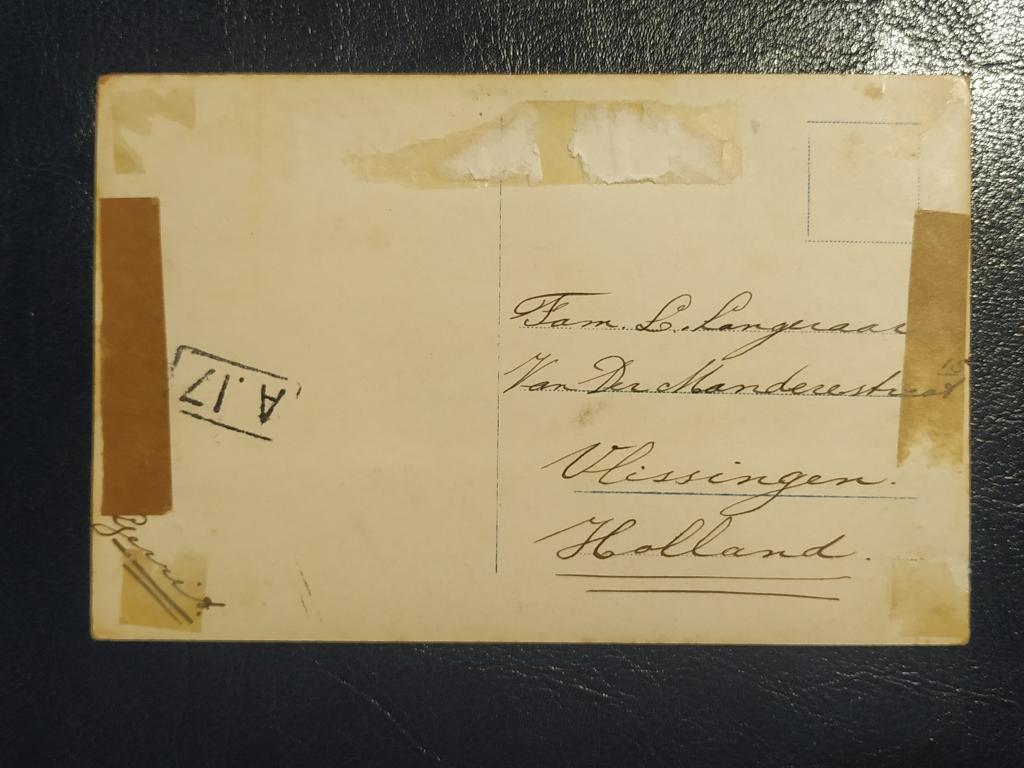 Fam. L. Langeraar
Van Der Manderestraat 15
Vlissingen.
Holland.
A.17
Gerrit